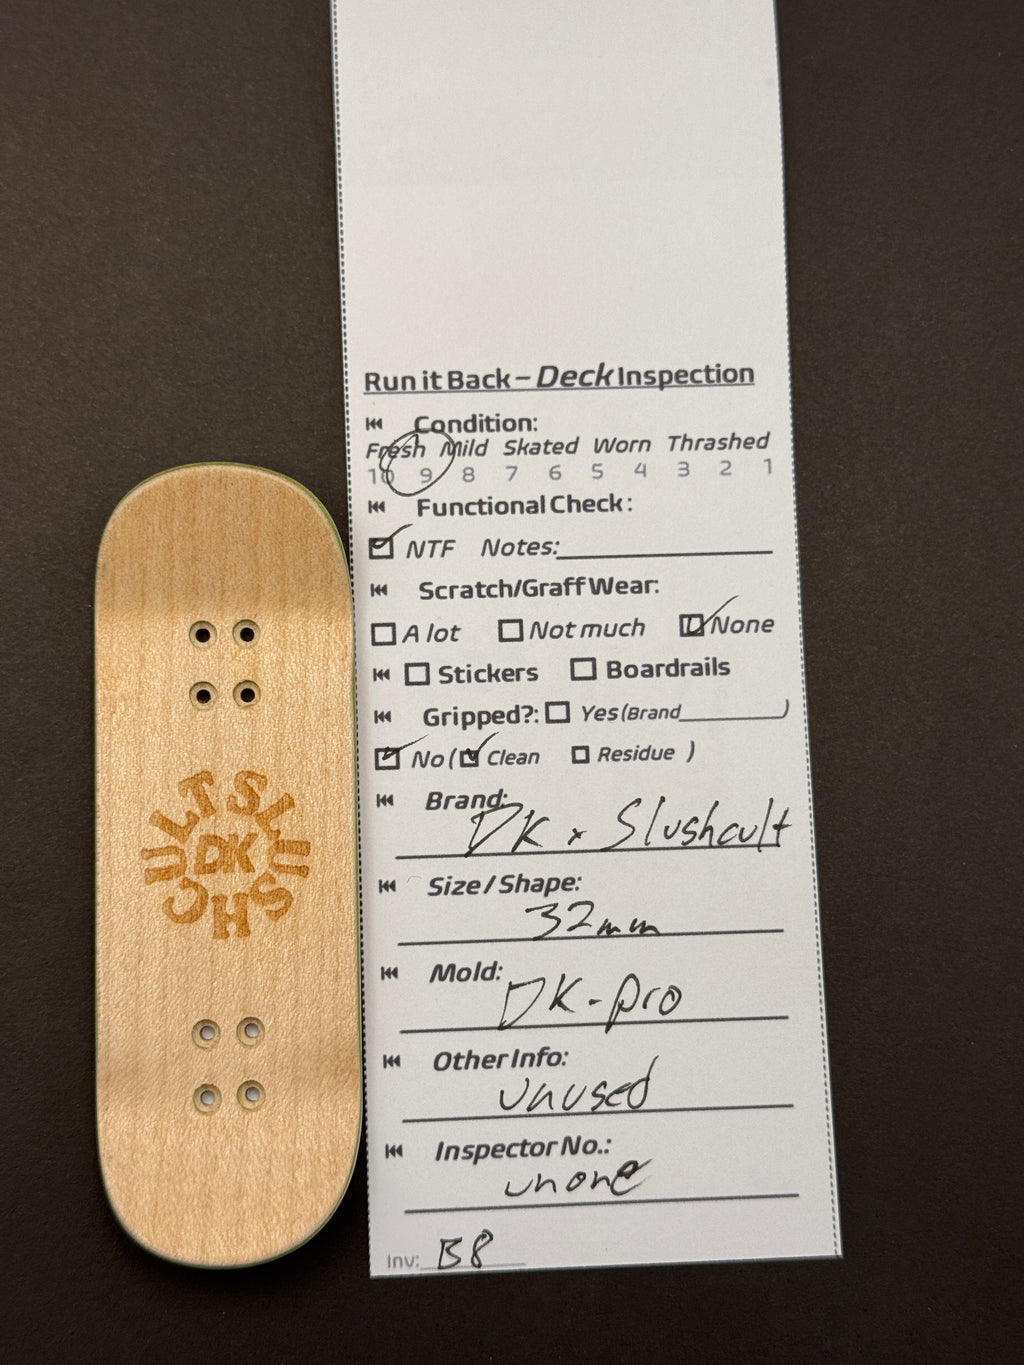 SLUSHCULT
DK
Run it Back – Deck Inspection
Condition:
Fresh Mild Skated Worn Thrashed
10 9 8 7 6 5 4 3 2 1
Functional Check:
NTF Notes:
Scratch/Graff Wear:
A lot Not much None
Stickers Boardrails
Gripped?: Yes (Brand )
No ( Clean Residue )
Brand:
DK x Slushcult
Size / Shape:
32mm
Mold:
DK-pro
Other Info:
unused
Inspector No.:
unone
Inv: B8